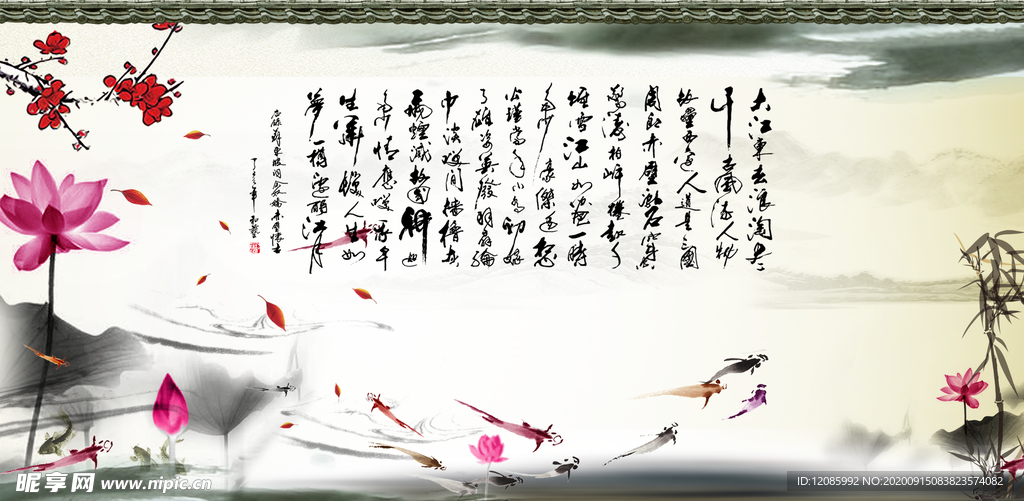 大江東去浪淘盡
千古風流人物
故壘西邊人道是三國
周郎赤壁亂石穿空
驚濤拍岸捲起千
堆雪江山如畫一時
多少豪傑遙想
公瑾當年小喬初嫁
了雄姿英發羽扇綸
巾談笑間檣櫓灰
飛煙滅故國神遊
多情應笑我早
生華髮人生如
夢一樽還酹江月
蘇東坡詞念奴嬌赤壁懷古
昵享网 www.nipic.cn
ID:12085992 NO:20200915083823574082